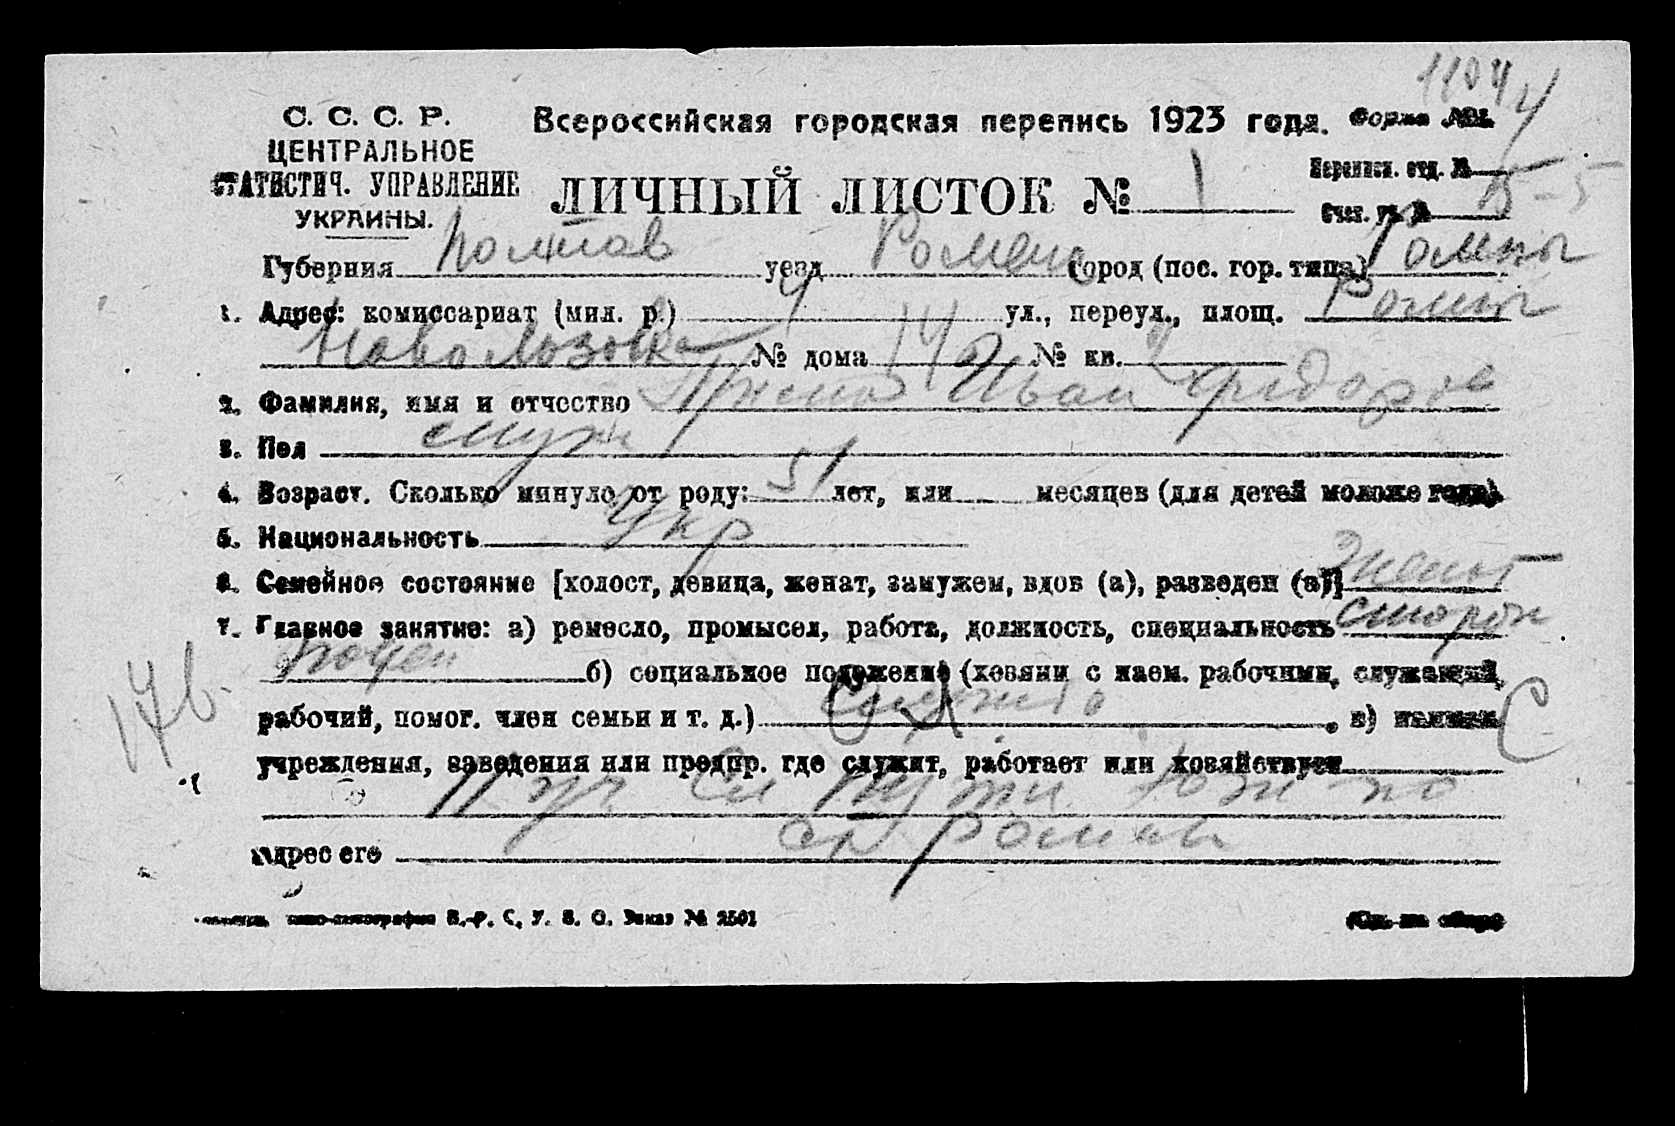 11044
С. С. С. Р.
ЦЕНТРАЛЬНОЕ
СТАТИСТИЧ. УПРАВЛЕНИЕ
УКРАИНЫ.
Всероссийская городская перепись 1923 года. Форма №1.
ЛИЧНЫЙ ЛИСТОК № 1
Переписн. отд. №
Счет. уч. № 15-5
Губерния Полтав уезд Роменс город (пос. гор. типа) Ромны
1. Адрес: комиссариат (мил. р.) ул., переул., площ. Ромны
№ дома 14 № кв.
2. Фамилия, имя и отчество Иван
3. Пол муж
4. Возраст. Сколько минуло от роду: 51 лет, или месяцев (для детей моложе года).
5. Национальность Укр
6. Семейное состояние [холост, девица, женат, замужем, вдов (а), разведен (а)] Женат
7. Главное занятие: а) ремесло, промысел, работа, должность, специальность сторож
б) социальное положение (хозяин с наем. рабочими, служащий,
рабочий, помог. член семьи и т. д.) в) назван. С
17б
учреждения, заведения или предпр. где служит, работает или хозяйствует
11 уч Сл Пути
Адрес его ст Ромны
В.-Р. С. У. В. О. Заказ № 2501